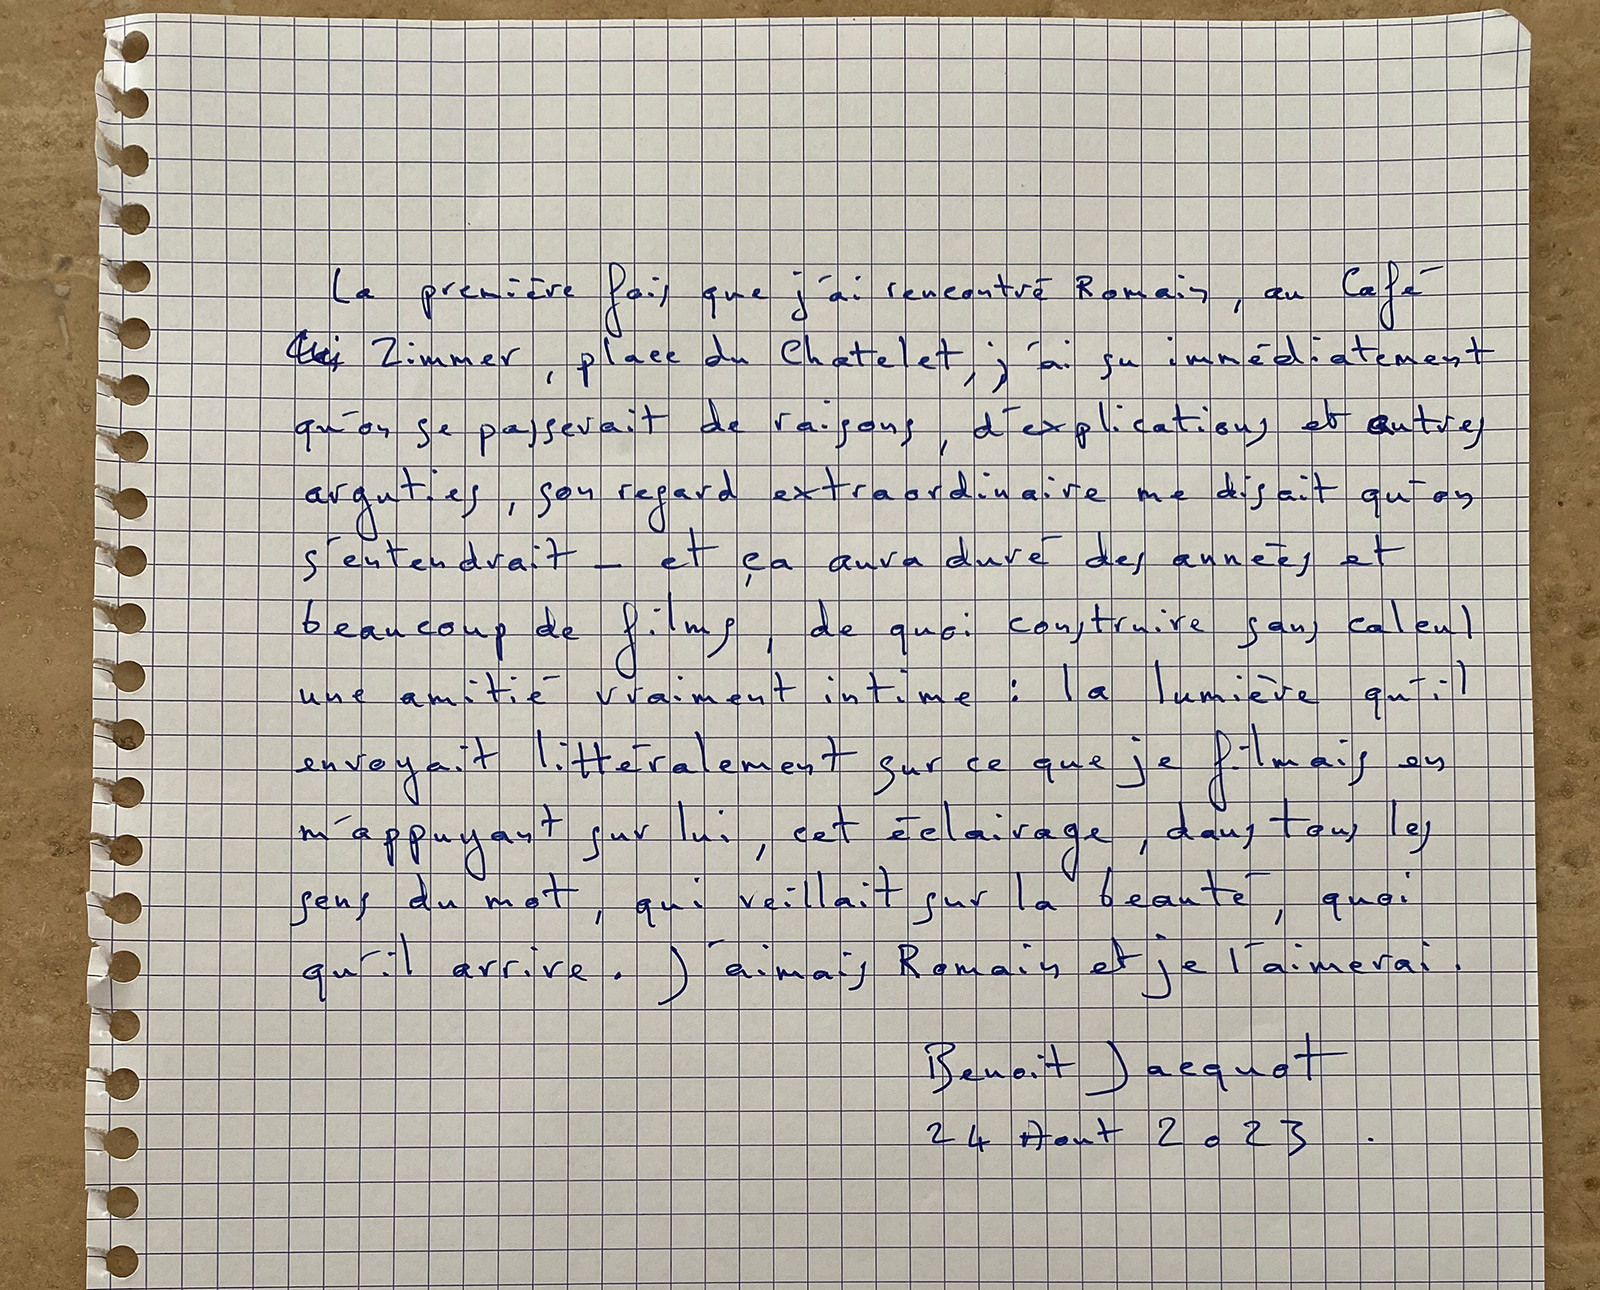 La première fois que j'ai rencontré Romain, au Café
Zimmer, place du Chatelet, j'ai su immédiatement
qu'on se passerait de raisons, d'explications et autres
arguties, son regard extraordinaire me disait qu'on
s'entendrait - et ça aura duré des années et
beaucoup de films, de quoi construire sans calcul
une amitié vraiment intime : la lumière qu'il
envoyait littéralement sur ce que je filmais en
m'appuyant sur lui, cet éclairage, dans tous les
sens du mot, qui veillait sur la beauté, quoi
qu'il arrive. J'aimais Romain et je l'aimerai.
Benoit Jacquot
24 Aout 2023.